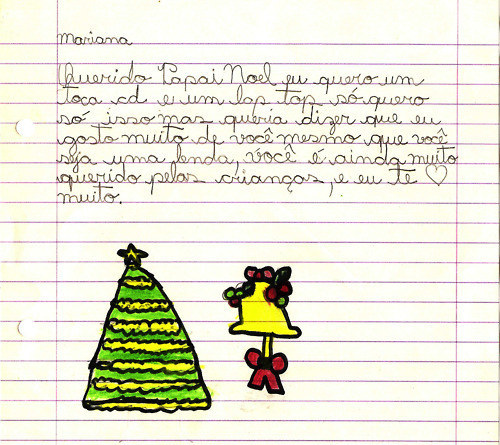 mariana
Querido Papai Noel eu quero um
toca cd e um lap top só quero
só isso mas queria dizer que eu
gosto muito de você mesmo que você
seja uma lenda, você é ainda muito
querido pelas crianças, e eu te ♡
muito.